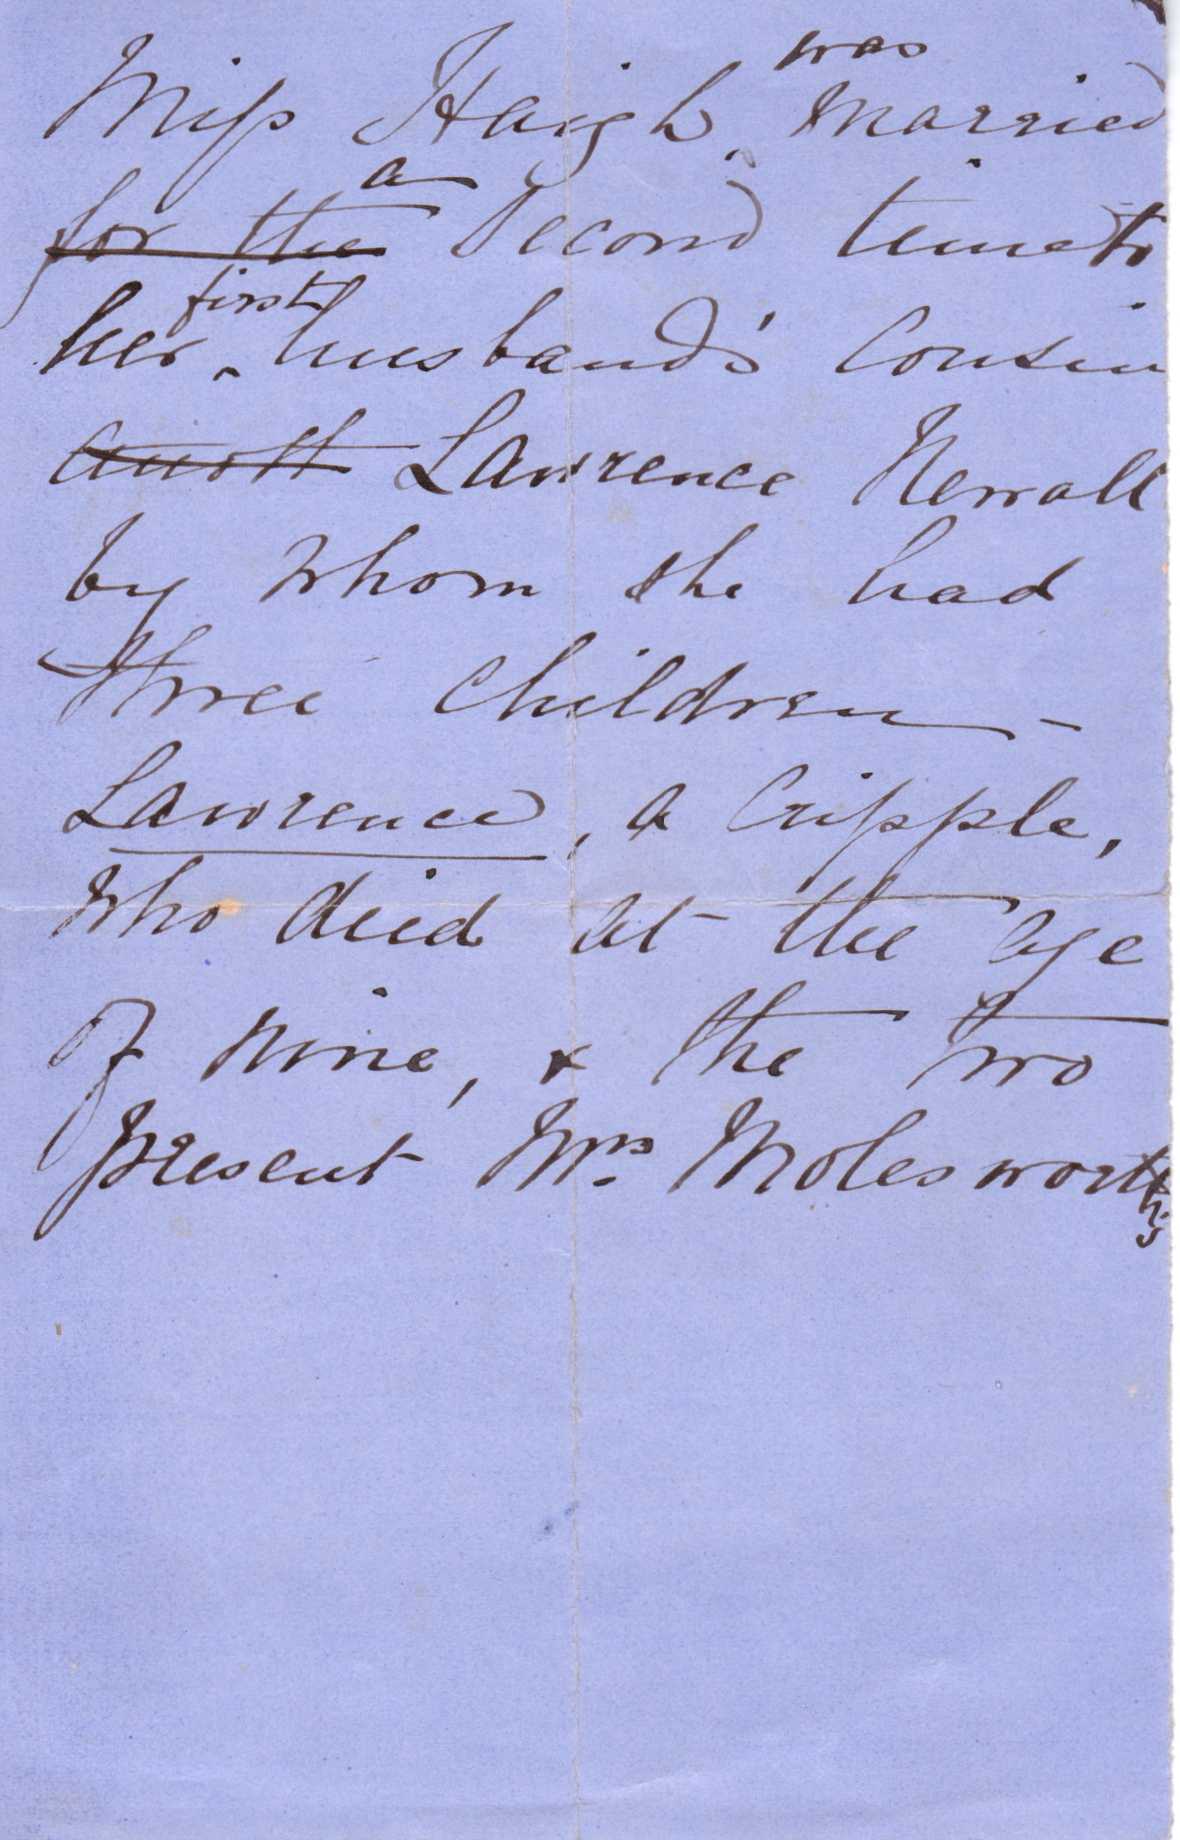 Miss Haigh was married
for the a second time to
her first husband's Cousin
anoth Lawrence Newall
by whom she had
three children -
Lawrence, a Cripple,
who died at the age
of nine, & the two
present Mrs Molesworth's